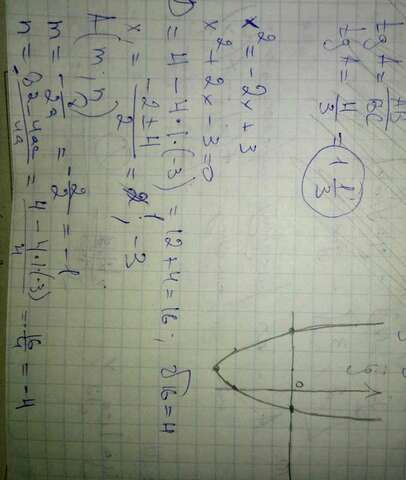 tg A = AB/BC
tg A = 4/3 = 1 1/3
x² = -2x + 3
x² + 2x - 3 = 0
D = 4 - 4·1·(-3) = 12 + 4 = 16; √16 = 4
x = (-2 ± 4)/2 = 1, -3
A(m; n)
m = -2/2a = -2/2 = -1
n = -(b² - 4ac)/4a = (4 - 4·1·(-3))/4 = -16/4 = -4
y
0